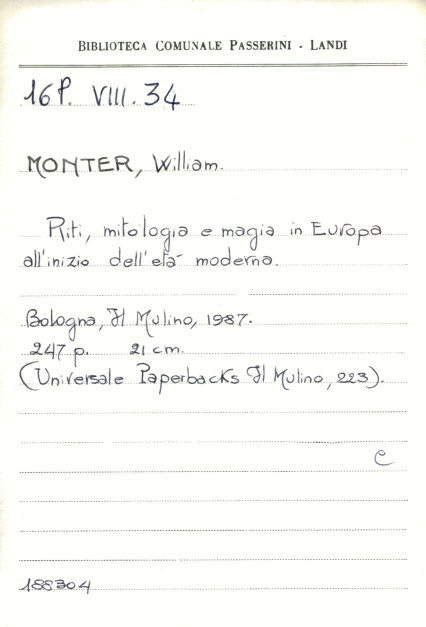 BIBLIOTECA COMUNALE PASSERINI - LANDI
16P. VIII. 34
MONTER, William.
Riti, mitologia e magia in Europa
all'inizio dell'età moderna.
Bologna, Il Mulino, 1987.
247 p. 21 cm.
(Universale Paperbacks Il Mulino, 223).
C
188304